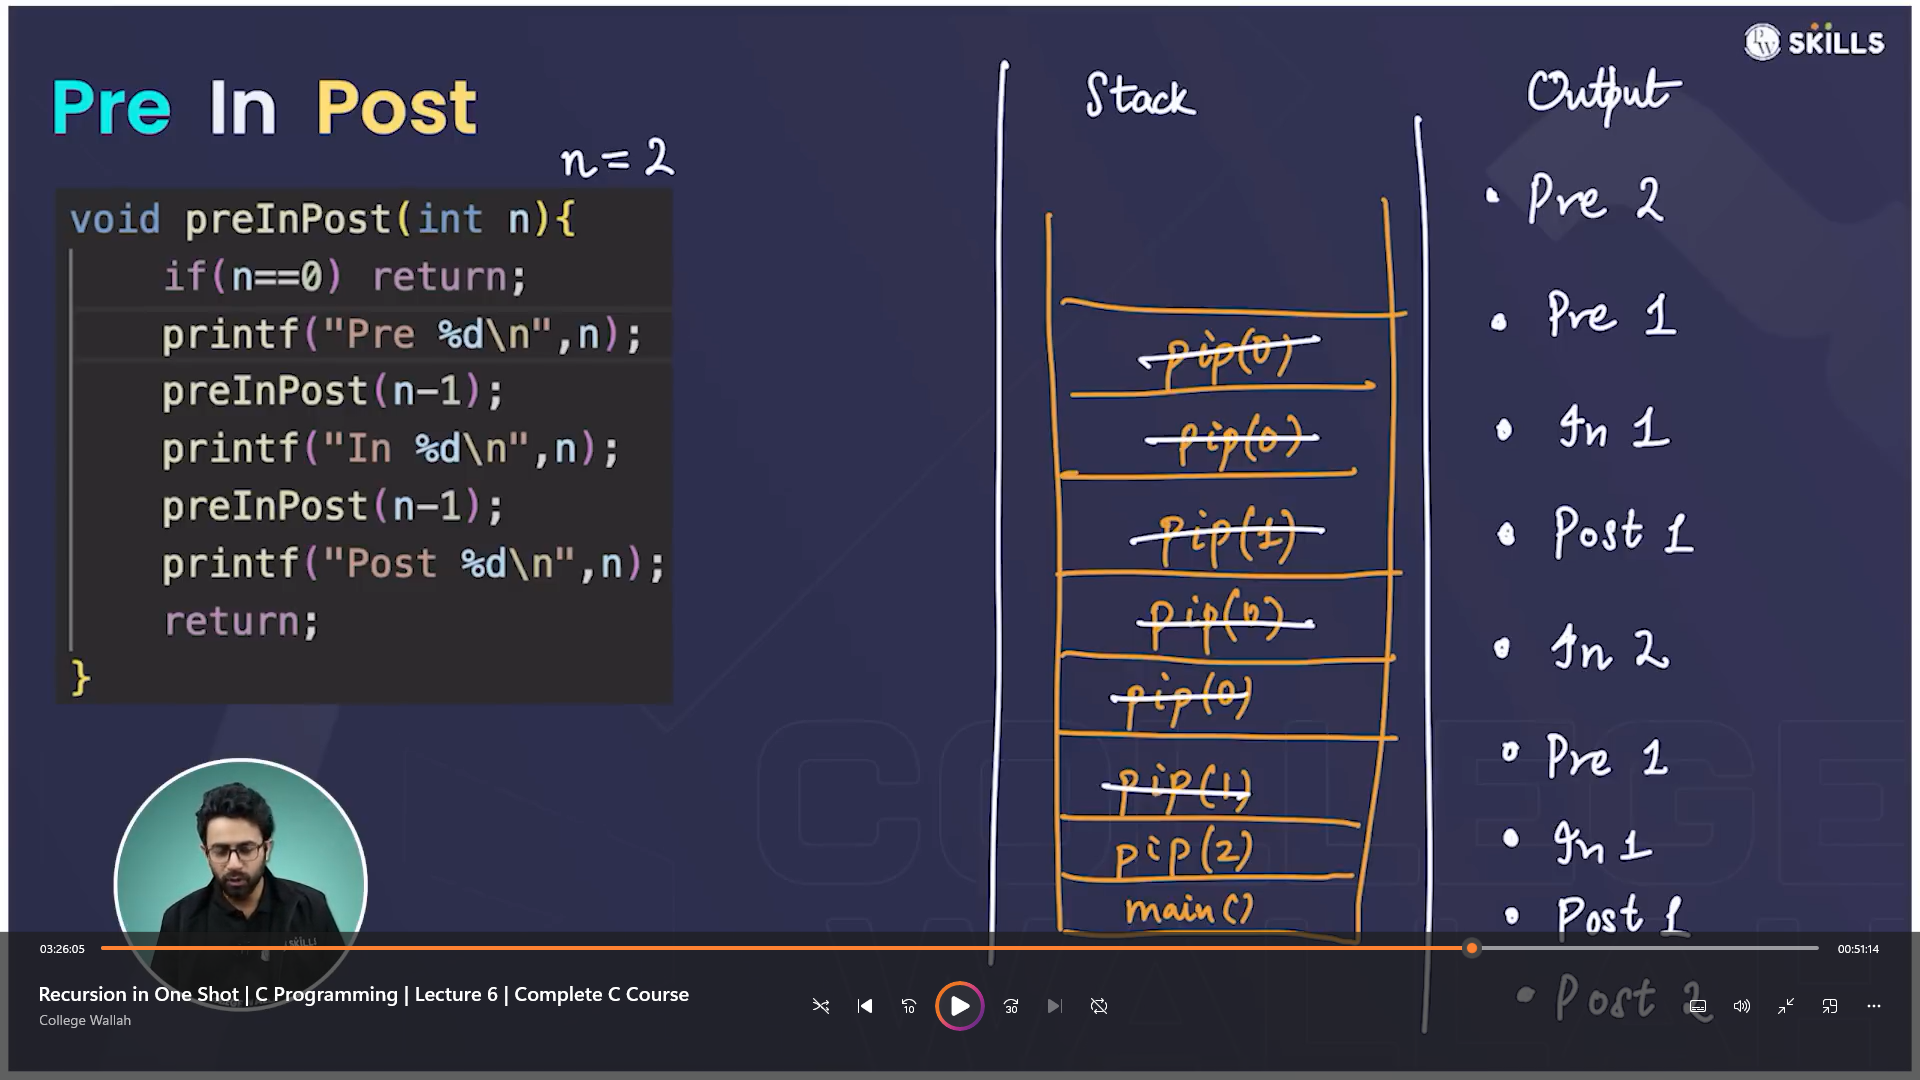 SKILLS
Pre In Post
n = 2
void preInPost(int n){
if(n==0) return;
printf("Pre %d\n",n);
preInPost(n-1);
printf("In %d\n",n);
preInPost(n-1);
printf("Post %d\n",n);
return;
}
Stack
pip(0)
pip(0)
pip(1)
pip(0)
pip(0)
pip(1)
pip(2)
main()
Output
• Pre 2
• Pre 1
• In 1
• Post 1
• In 2
• Pre 1
• In 1
• Post 1
• Post 2
COLLEGE
03:26:05
00:51:14
Recursion in One Shot | C Programming | Lecture 6 | Complete C Course
College Wallah
10
30